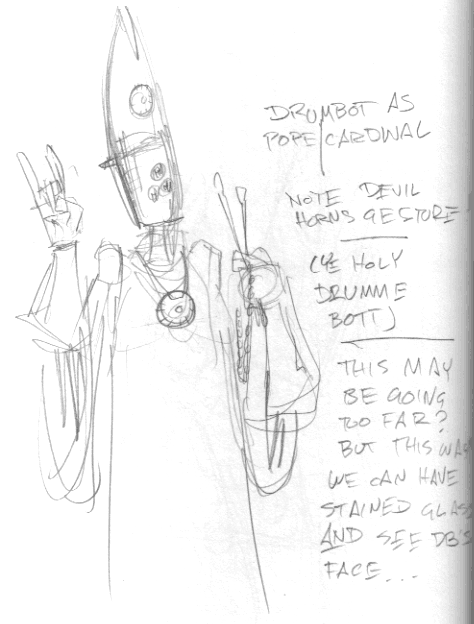 DRUMBOT AS
POPE/CARDINAL
NOTE DEVIL
HORNS GESTURE!
(YE HOLY
DRUMME
BOTT)
THIS MAY
BE GOING
TOO FAR?
BUT THIS WAY
WE CAN HAVE
STAINED GLASS
AND SEE DB'S
FACE...